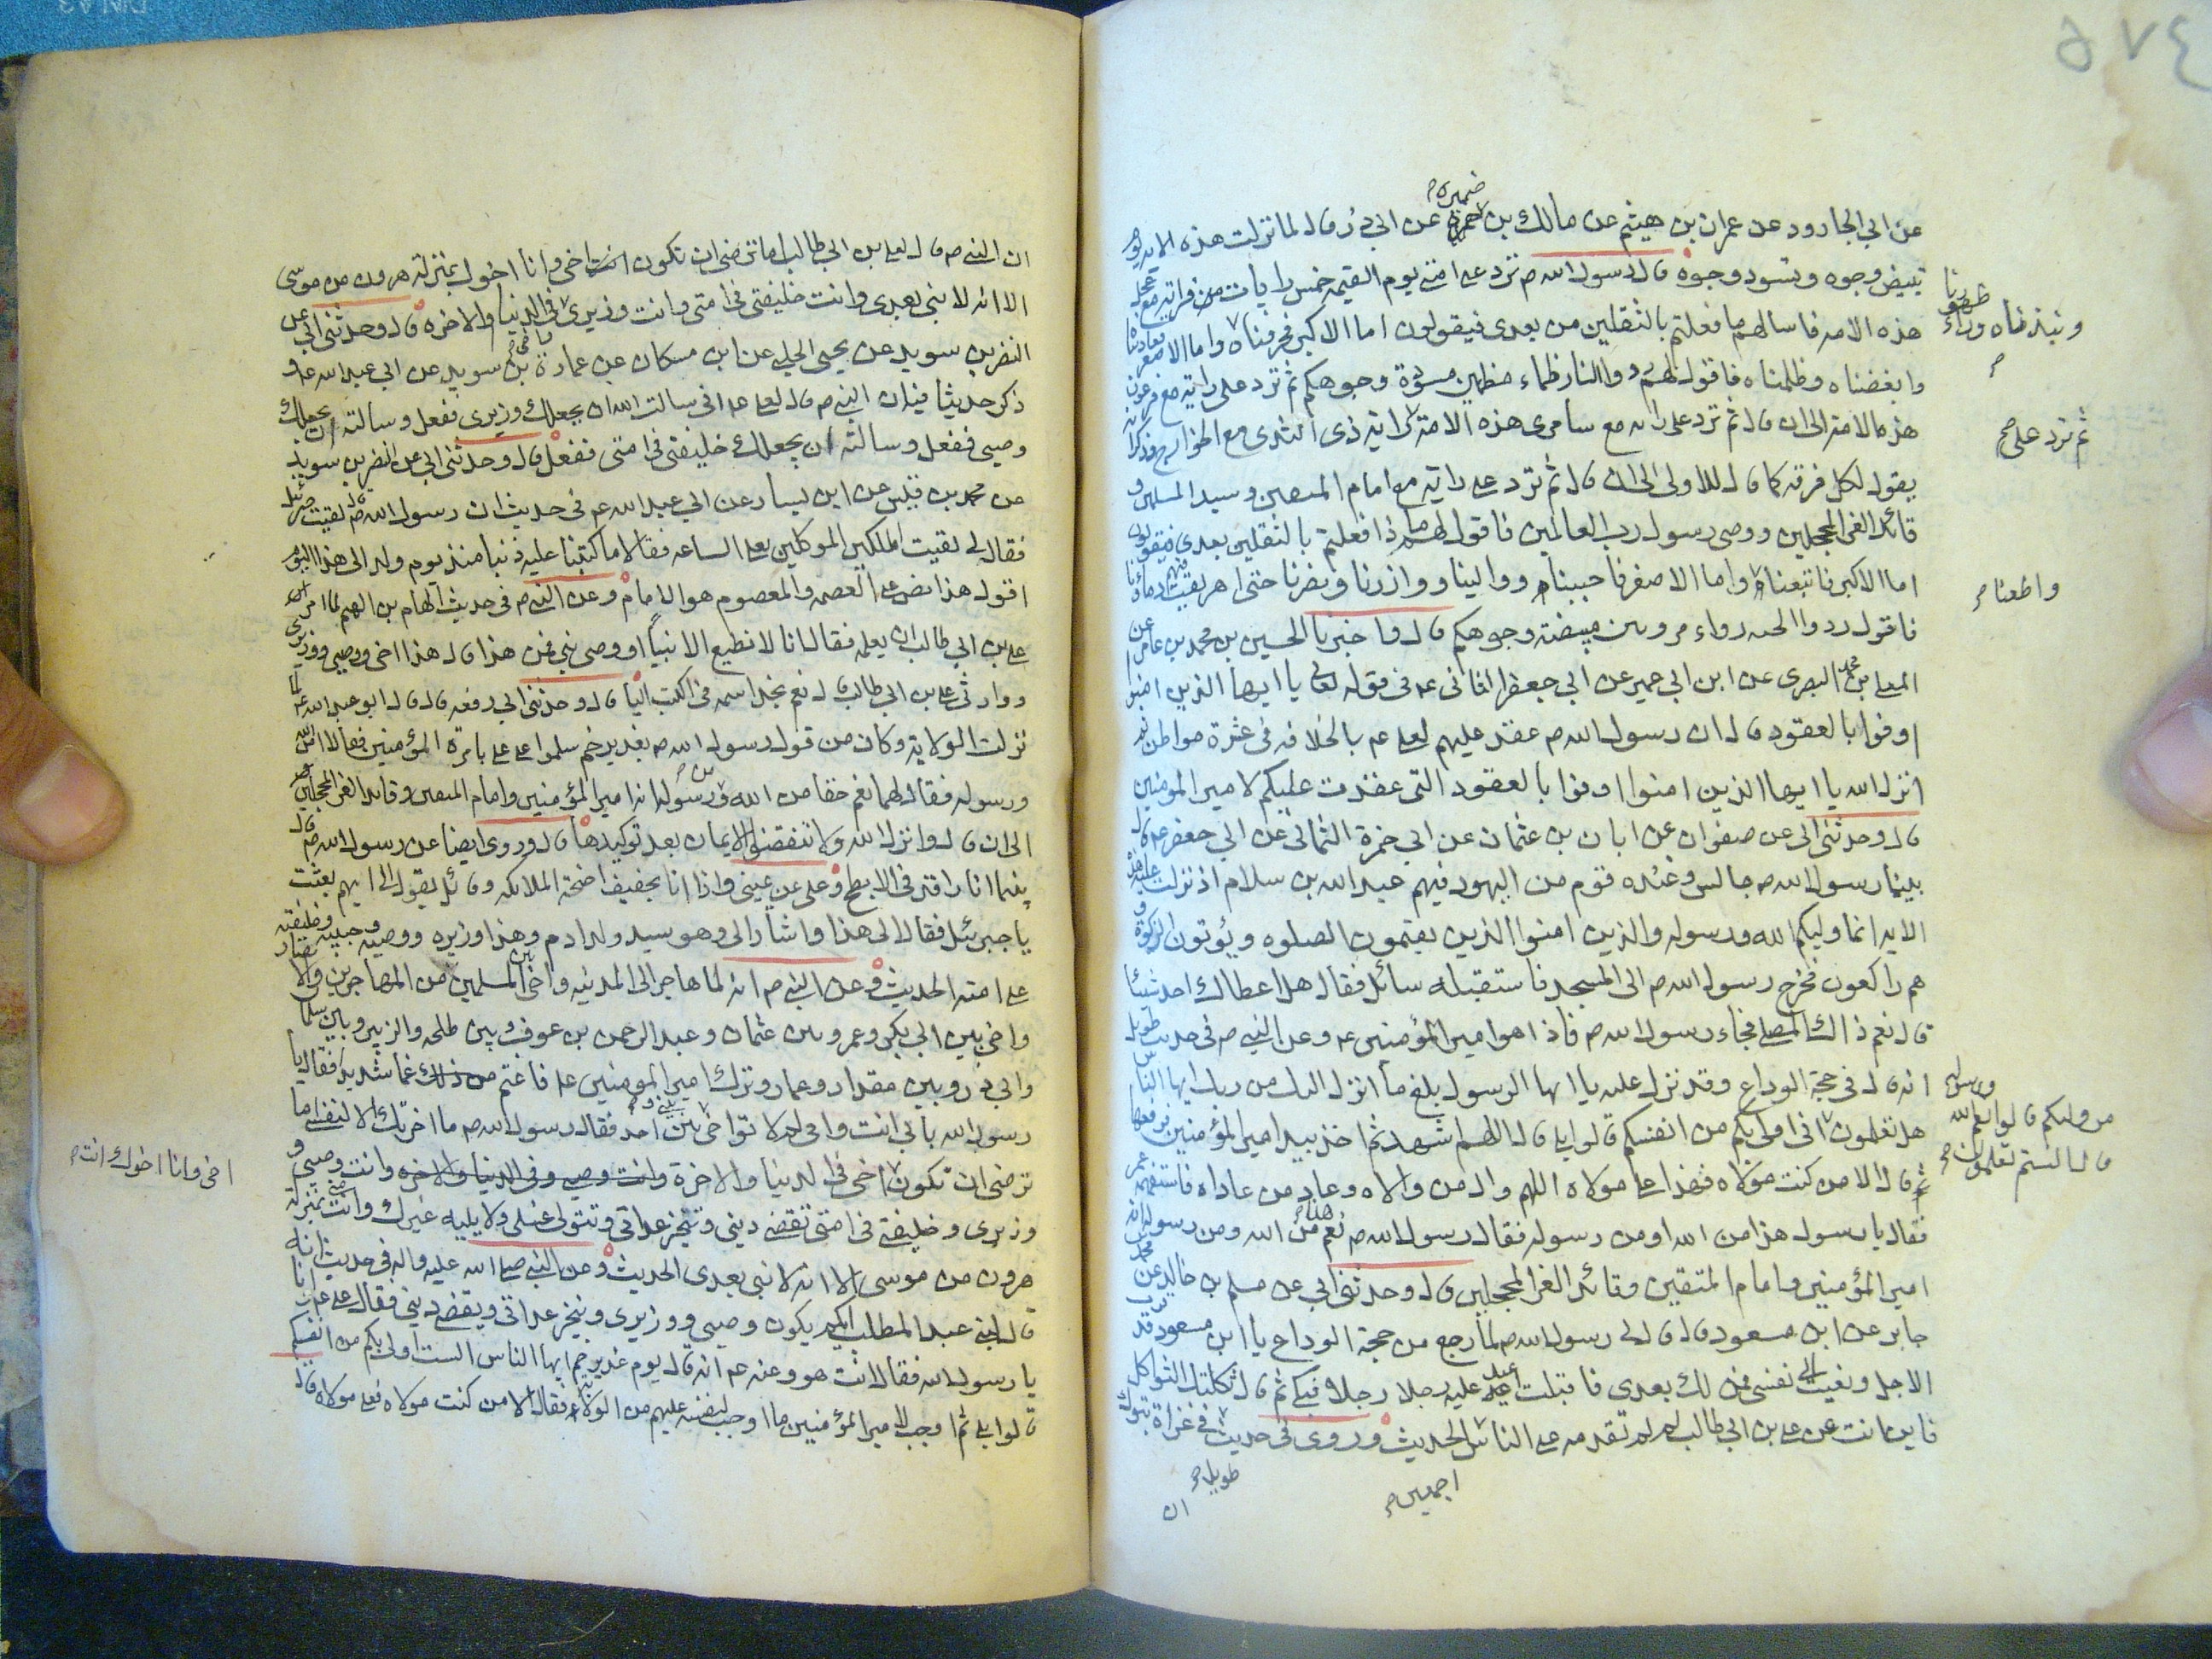 ٥٧٤
عن ابي الجارود عن عمران بن هيثم عن مالك بن ضميرة عن ابي ذر قال لما نزلت هذه الايه يوم
تبيض وجوه وتسود وجوه قال رسول الله ص ترد على امتي يوم القيمه خمس رايات فرايه مع عجل
هذه الامه فاسالهم ما فعلتم بالثقلين من بعدي فيقولون اما الاكبر فحرفناه واما الاصغر فعاديناه
ونبذناه وراء ظهورنا
وابغضناه وظلمناه فاقول لهم ردوا النار ظماء مظمئين مسودة وجوهكم ثم ترد على راية مع فرعون
هذه الامة الى ان قال ثم ترد على راية مع سامري هذه الامة ثم ترد على راية ذي الثدي مع الخوارج فذكر انه
يقول لكل فرقه كما قال للاولى الى ان قال ثم ترد على راية مع امام المتقين وسيد المسلمين و
قائد الغر المحجلين ووصي رسول رب العالمين فاقول لهم ماذا فعلتم بالثقلين بعدي فيقولون
اما الاكبر فاتبعناه واطعناه واما الاصغر فاحببناه ووالينا ووازرنا ونصرنا حتى اهريقت فيهم دماؤنا
فاقول ردوا الجنه رواء مرويين مبيضة وجوهكم قال واخبرنا الحسين بن محمد بن عامر عن
المعلى بن محمد البصري عن ابن ابي عمير عن ابي جعفر الثاني ع في قوله تعالى يا ايها الذين امنوا
اوفوا بالعقود قال ان رسول الله ص عقد عليهم لعلي ع بالخلافه في عشرة مواطن ثم
انزل الله يا ايها الذين امنوا اوفوا بالعقود التي عقدت عليكم لامير المؤمنين
قال وحدثني ابي عن صفوان عن ابان بن عثمان عن ابي حمزة الثمالي عن ابي جعفر ع قال
بينما رسول الله ص جالس وعنده قوم من اليهود فيهم عبد الله بن سلام اذ نزلت عليه هذه
الايه انما وليكم الله ورسوله والذين امنوا الذين يقيمون الصلوه ويؤتون الزكوة و
هم راكعون فخرج رسول الله ص الى المسجد فاستقبله سائل فقال هل اعطاك احد شيئا
قال نعم ذاك المصلي فجاء رسول الله ص فاذا هو امير المؤمنين ع وعن النبي ص في حديث طويل
انه قال في حجة الوداع وقد نزل عليه يا ايها الرسول بلغ ما انزل اليك من ربك ايها الناس
من وليكم قالوا الله ورسوله
قال الستم تعلمون
هل تعلمون اني اولى بكم من انفسكم قالوا بلى قال اللهم اشهد ثم اخذ بيد امير المؤمنين فرفعها
ثم قال الا من كنت مولاه فهذا علي مولاه اللهم وال من والاه وعاد من عاداه فاستفهمه عمر
فقال يا رسول الله هذا من الله او من رسوله فقال رسول الله ص نعم هذا من الله ومن رسوله انه
امير المؤمنين وامام المتقين وقائد الغر المحجلين قال وحدثني ابي عن مسلم بن خالد عن محمد بن
جابر عن ابن مسعود قال قال لي رسول الله ص لما رجع من حجة الوداع يا ابن مسعود قد قرب
الاجل ونعيت الي نفسي فمن لك بعدي فاقبلت اعد عليه رجلا رجلا فبكى ثم قال ثكلتك الثواكل
فاين انت عن علي بن ابي طالب لم لم تقدمه على الناس اجمعين الحديث وروى في حديث طويل في غزاة تبوك
ان
ان النبي ص قال لعلي بن ابي طالب اما ترضى ان تكون اخي وانا اخوك بمنزلة هرون من موسى
الا انه لا نبي بعدي وانت خليفتي في امتي وانت وزيري واخي في الدنيا والاخره قال وحدثني ابي عن
النضر بن سويد عن يحيى الحلبي عن ابن مسكان عن عمارة بن سويد عن ابي عبد الله ع و
ذكر حديثا فيه ان النبي ص قال لعلي ع اني سالت الله ان يجعلك وزيري ففعل وسالته ان يجعلك
وصيي ففعل وسالته ان يجعلك خليفتي في امتي ففعل قال وحدثني ابي عن النضر بن سويد
عن محمد بن قيس عن ابن يسار عن ابي عبد الله ع في حديث ان رسول الله ص قال لقيت جبرئيل
فقال لي لقيت الملكين الموكلين بعلي الساعه فقالا ما كتبنا عليه ذنبا منذ يوم ولد الى هذا اليوم
اقول هذا نص على العصمه والمعصوم هو الامام وعن النبي ص في حديث الهام بن الهيم لما امر
علي بن ابي طالب ان يعلمه فقال انا لا نطيع الا نبيا او وصي نبي فمن هذا قال هذا اخي ووصيي ووزيري
ووارثي علي بن ابي طالب قال نعم نجد اسمه في الكتب اليا قال وحدثني ابي رفعه قال قال ابو عبد الله ع لما
نزلت الولاية وكان من قول رسول الله ص بغدير خم سلموا على علي بامرة المؤمنين فقالا امن الله
ورسوله فقال لهما نعم حقا من الله ومن رسوله انه امير المؤمنين وامام المتقين وقائد الغر المحجلين
الى ان قال وانزل الله ولا تنقضوا الايمان بعد توكيدها قال وروى ايضا عن رسول الله ص قال
بينما انا راقد في الابطح وعلي عن يميني واذا انا بحفيف اجنحة الملائكه وقائل يقول الى ايهم بعثت
يا جبرئيل فقال الى هذا واشار الي وهو سيد ولد ادم وهذا وزيره ووصيه وحبيبه وخليفته
على امته الحديث وعن النبي ص انه لما هاجر الى المدينه واخى بين المسلمين من المهاجرين والانصار
واخى بين ابي بكر وعمر وبين عثمان وعبد الرحمن بن عوف وبين طلحه والزبير وبين سلمان
وابي ذر وبين مقداد وعمار وترك امير المؤمنين ع فاغتم من ذلك غما شديدا فقال يا
رسول الله بابي انت وامي لم لا تواخي بيني وبين احد فقال رسول الله ص ما اخرتك الا لنفسي اما
ترضى ان تكون اخي وانا اخوك انت اخي في الدنيا والاخرة وانت وصيي و
وزيري وخليفتي في امتي تقضي ديني وتنجز عداتي وتتولى غسلي ولا يليه غيرك وانت مني بمنزلة
هرون من موسى الا انه لا نبي بعدي الحديث وعن النبي صلى الله عليه واله في حديث انه
قال لبني عبد المطلب ايكم يكون وصيي ووزيري وينجز عداتي ويقضي ديني فقال علي ع انا
يا رسول الله فقال انت هو وعنه ع انه قال يوم غدير خم ايها الناس الست اولى بكم من انفسكم
قالوا بلى ثم اوجب لامير المؤمنين ما اوجب لنفسه عليهم من الولاية فقال الا من كنت مولاه فعلي مولاه قال